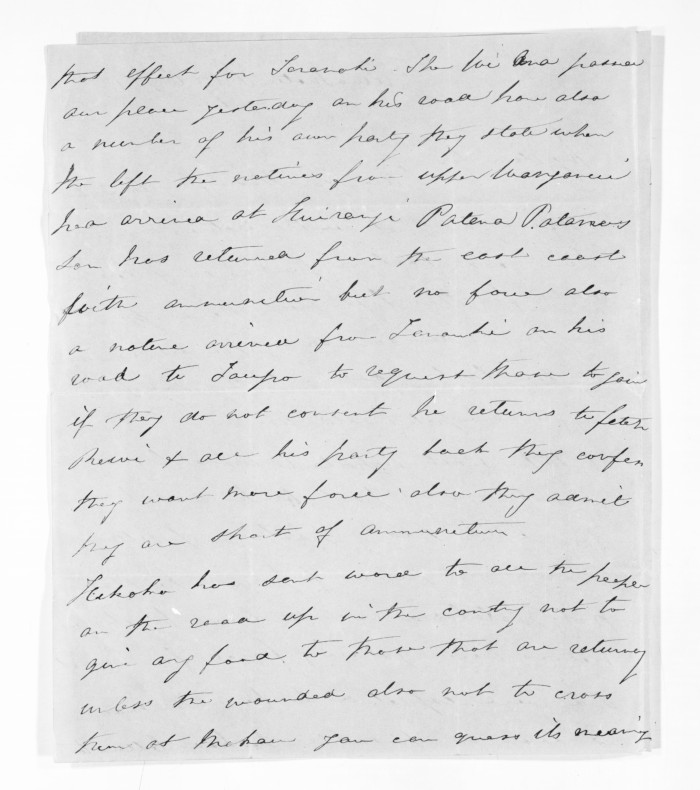 that effect for Taranaki. She Wi passed
our place yesterday on his road home also
a number of his own party they state when
he left the natives from upper Wanganui
had arrived at Patena Patanas
Son has returned from the east coast
with ammunition but no force also
a native arrived from Taranki on his
road to Taupo to request those to join
if they do not consent he returns to fetch
Rewi & all his party back they confess
they want more force also they admit
they are short of ammunetion.
has sent word to all the people
on the road up in the contry not to
give any food to those that are returng
unless the wounded also not to cross
them at Mokau you can guess its meaning